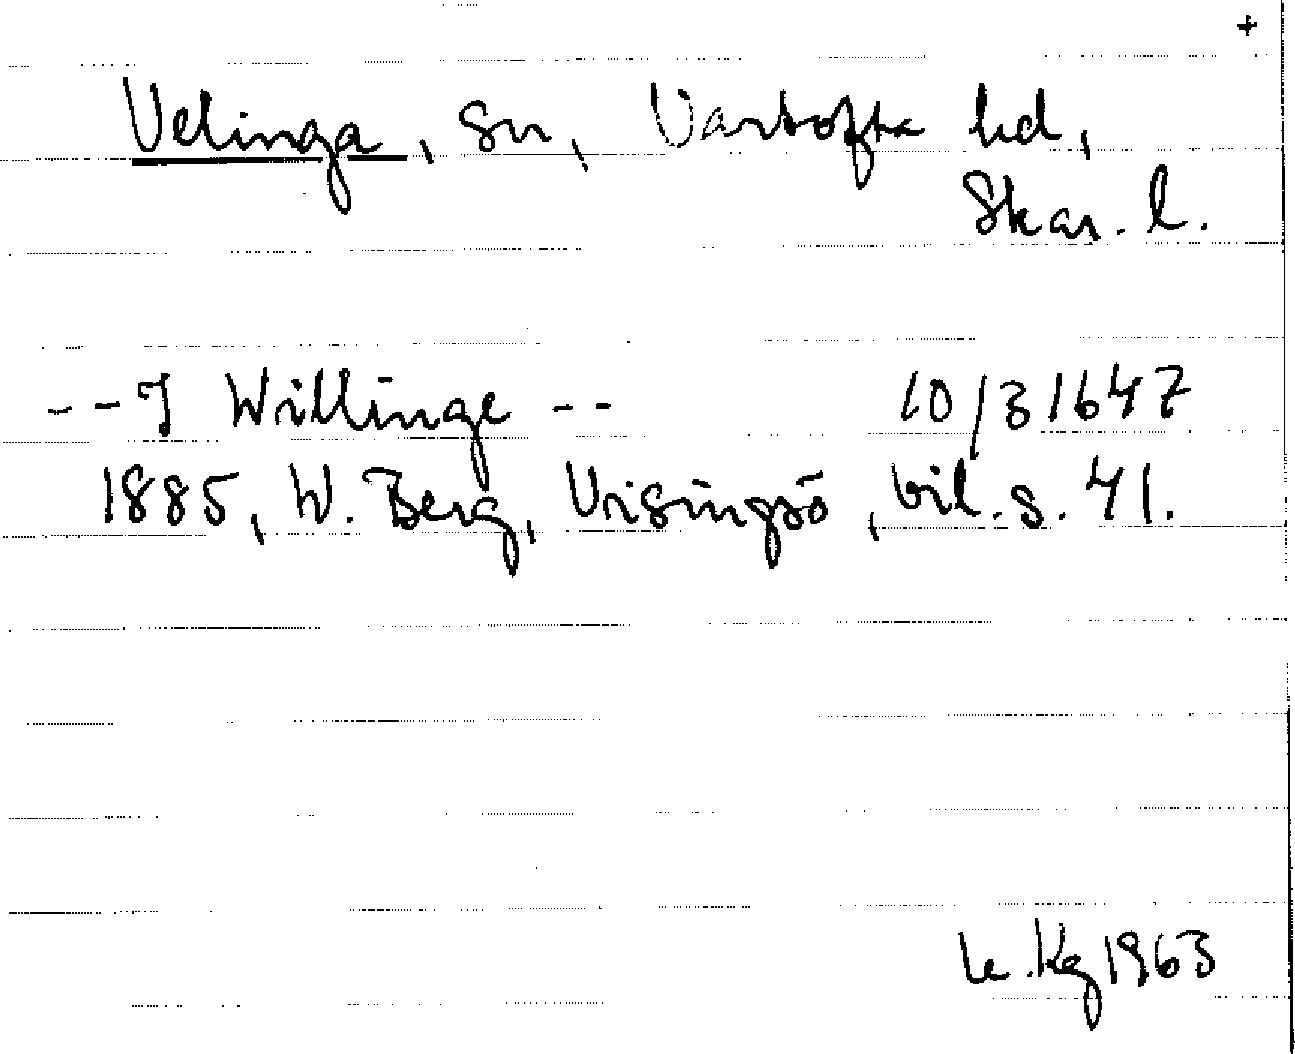 +
Velinga, sn, Vartofta hd,
Skar. l.
--I Willinge -- 10/3 1647
1885, W. Berg, Visingsö, bil. s. 41.
Kg 1963